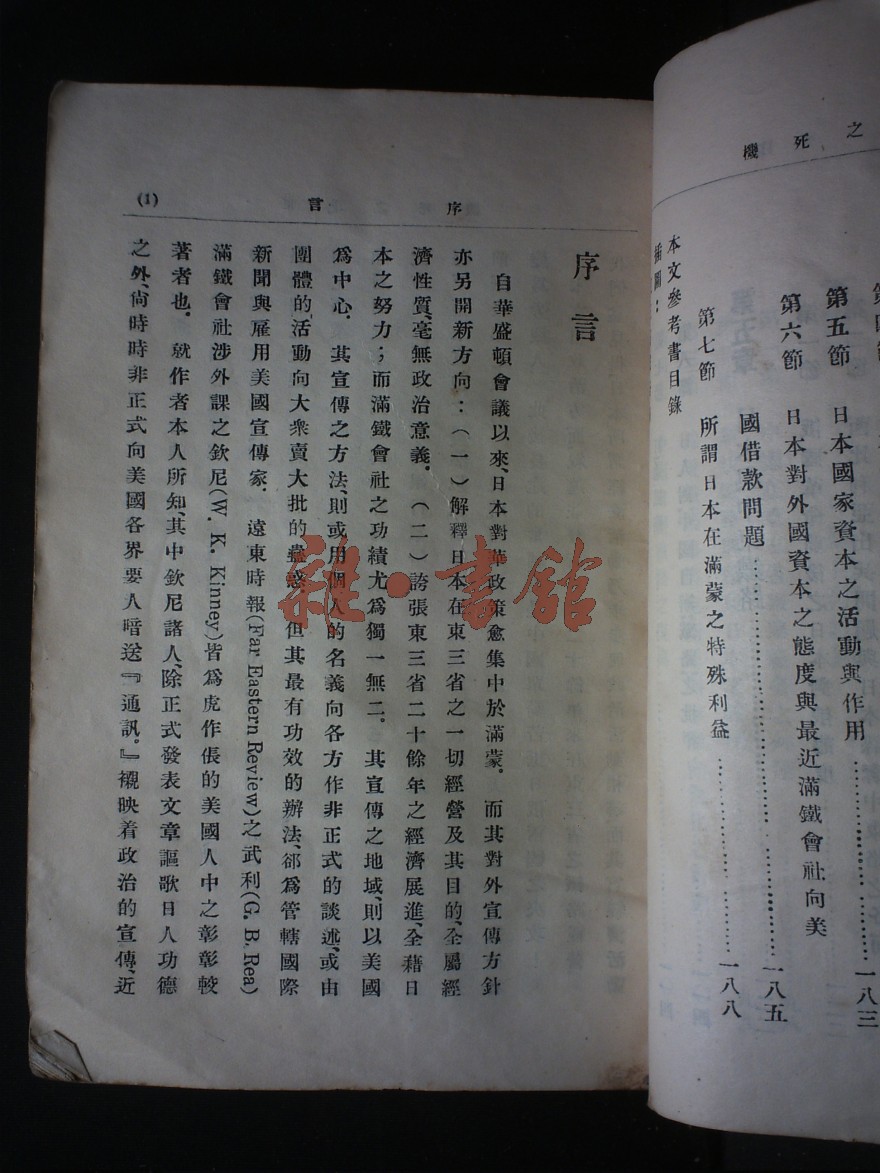 之死機
第五節 日本國家資本之活動與作用………………一八三
第六節 日本對外國資本之態度與最近滿鐵會社向美
國借款問題………………一八五
第七節 所謂日本在滿蒙之特殊利益………………一八八
本文參考書目錄
插圖：
序言 (1)
序言
自華盛頓會議以來、日本對華政策愈集中於滿蒙．而其對外宣傳方針
亦另開新方向：（一）解釋日本在東三省之一切經營及其目的、全屬經
濟性質、毫無政治意義．（二）誇張東三省二十餘年之經濟展進、全藉日
本之努力；而滿鐵會社之功績尤爲獨一無二．其宣傳之地域、則以美國
爲中心．其宣傳之方法、則或用個人的名義向各方作非正式的談述、或由
團體的活動向大衆賣大批的蠱惑．但其最有功效的辦法、卻爲管轄國際
新聞與雇用美國宣傳家．遠東時報(Far Eastern Review)之武利(G. B. Rea)
滿鐵會社涉外課之欽尼(W. K. Kinney)皆爲虎作倀的美國人中之彰彰較
著者也．就作者本人所知、其中欽尼諸人、除正式發表文章謳歌日人功德
之外、尙時時非正式向美國各界要人暗送『通訊』．襯映着政治的宣傳、近
雜·書館